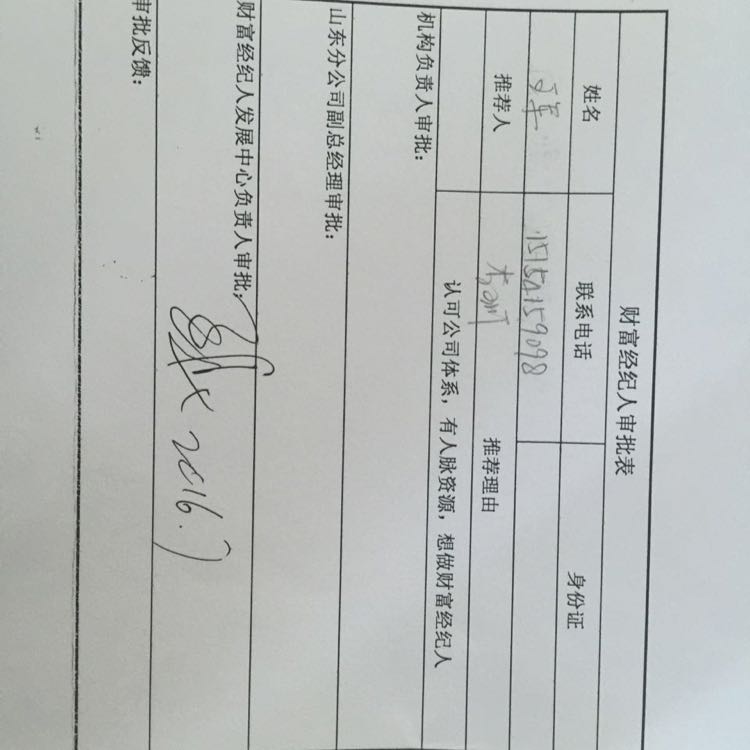 财富经纪人审批表
姓名 联系电话 身份证
15154159098
推荐人 推荐理由
认可公司体系，有人脉资源，想做财富经纪人
机构负责人审批：
山东分公司副总经理审批：
财富经纪人发展中心负责人审批：
2016.7
审批反馈：